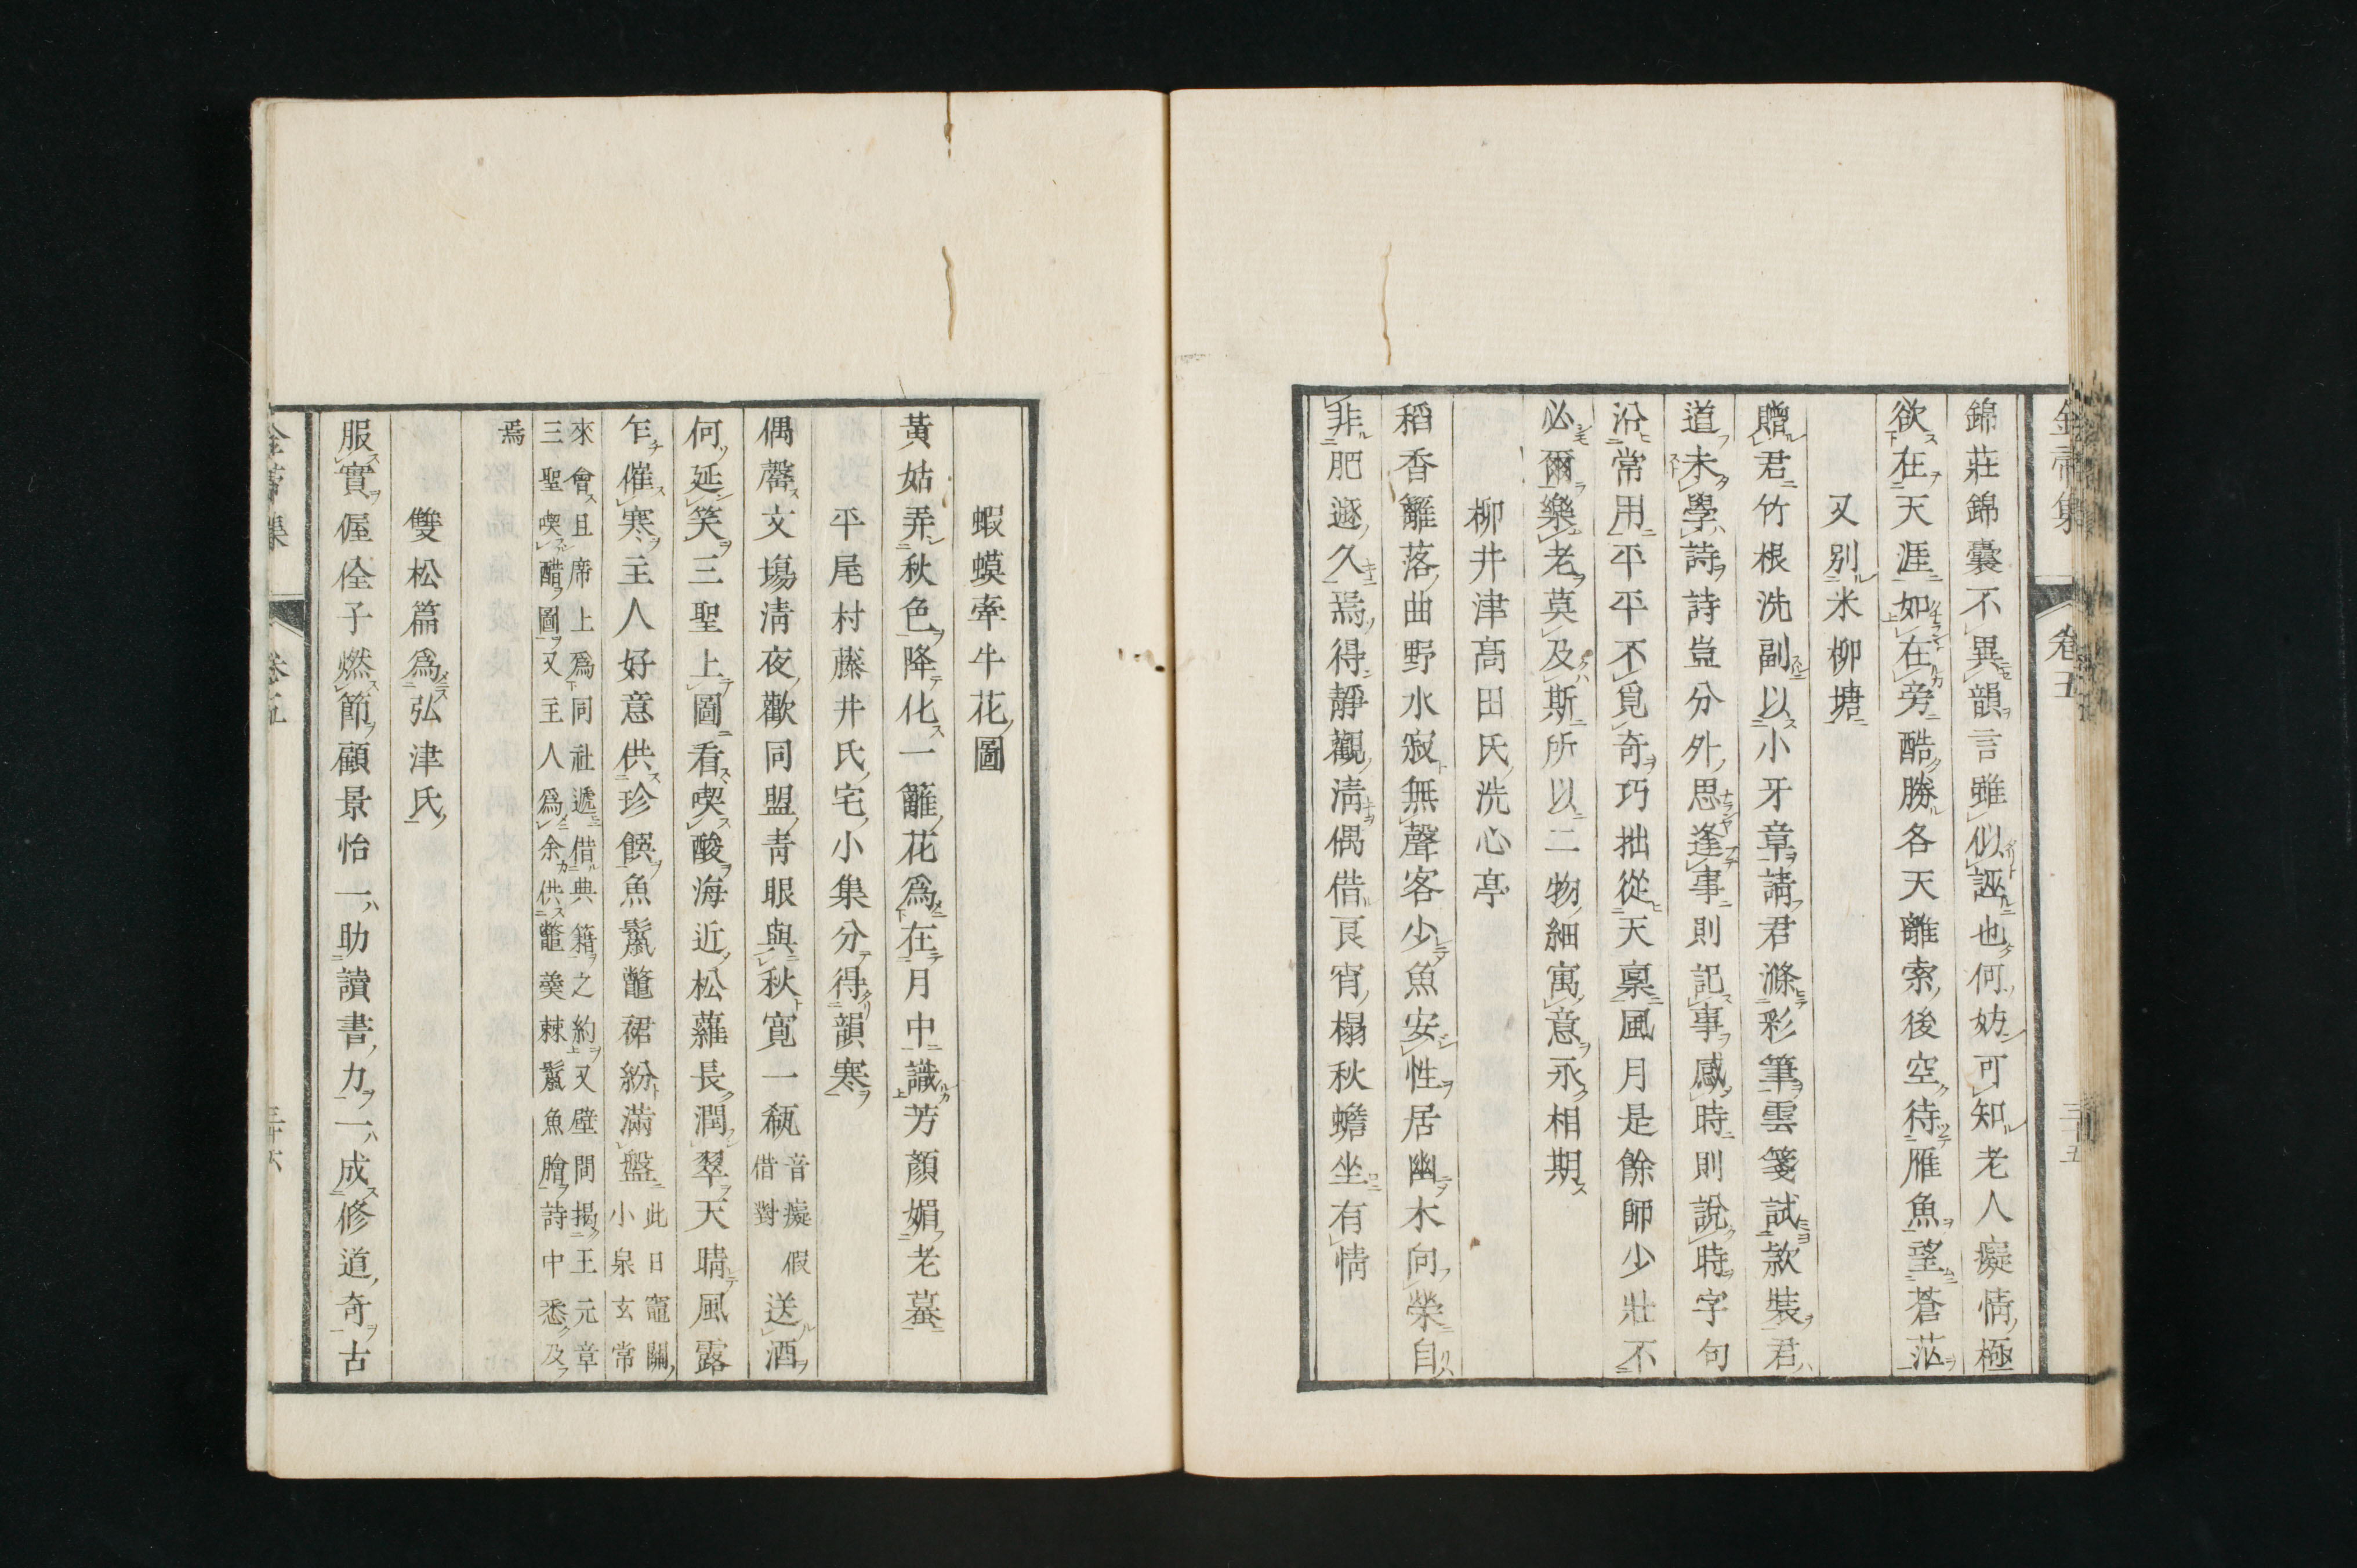 錦莊錦囊不異韻言雖似誣也何妨可知老人癡情極
欲在天涯如在旁酷勝各天離索後空待雁魚望蒼茫
又別米柳塘
贈君竹根洗副以小牙章請君滌彩筆雲箋試款裝君
道未學詩詩豈分外思逢事則記事感時則說時字句
沿常用平平不覓奇巧拙從天稟風月是餘師少壯不
必爾樂老莫及斯所以二物細寓意永相期
柳井津髙田氏洗心亭
稻香籬落曲野水寂無聲客少魚安性居幽木向榮自
非肥遯久焉得靜觀清偶借良宵榻秋蟾坐有情
蝦蟆牽牛花圖
黃姑弄秋色降化一籬花爲在月中識芳顏媚老蟇
平尾村藤井氏宅小集分得韻寒
偶罄文塲淸夜歡同盟青眼與秋寬一瓻音癡 假借對送酒
何延笑三聖上圖看喫酸海近松蘿長潤翠天晴風露
乍催寒主人好意供珍饌魚鬣鼈裙紛滿盤此日竈關小泉玄常
來會且席上爲同社遞借典籍之約又壁間揭王元章
三聖喫醋圖又主人爲余供鼈羹棘鬣魚膾詩中悉及
焉
雙松篇爲弘津氏
服實偓佺子燃節顧景怡一助讀書力一成修道奇古
卷五